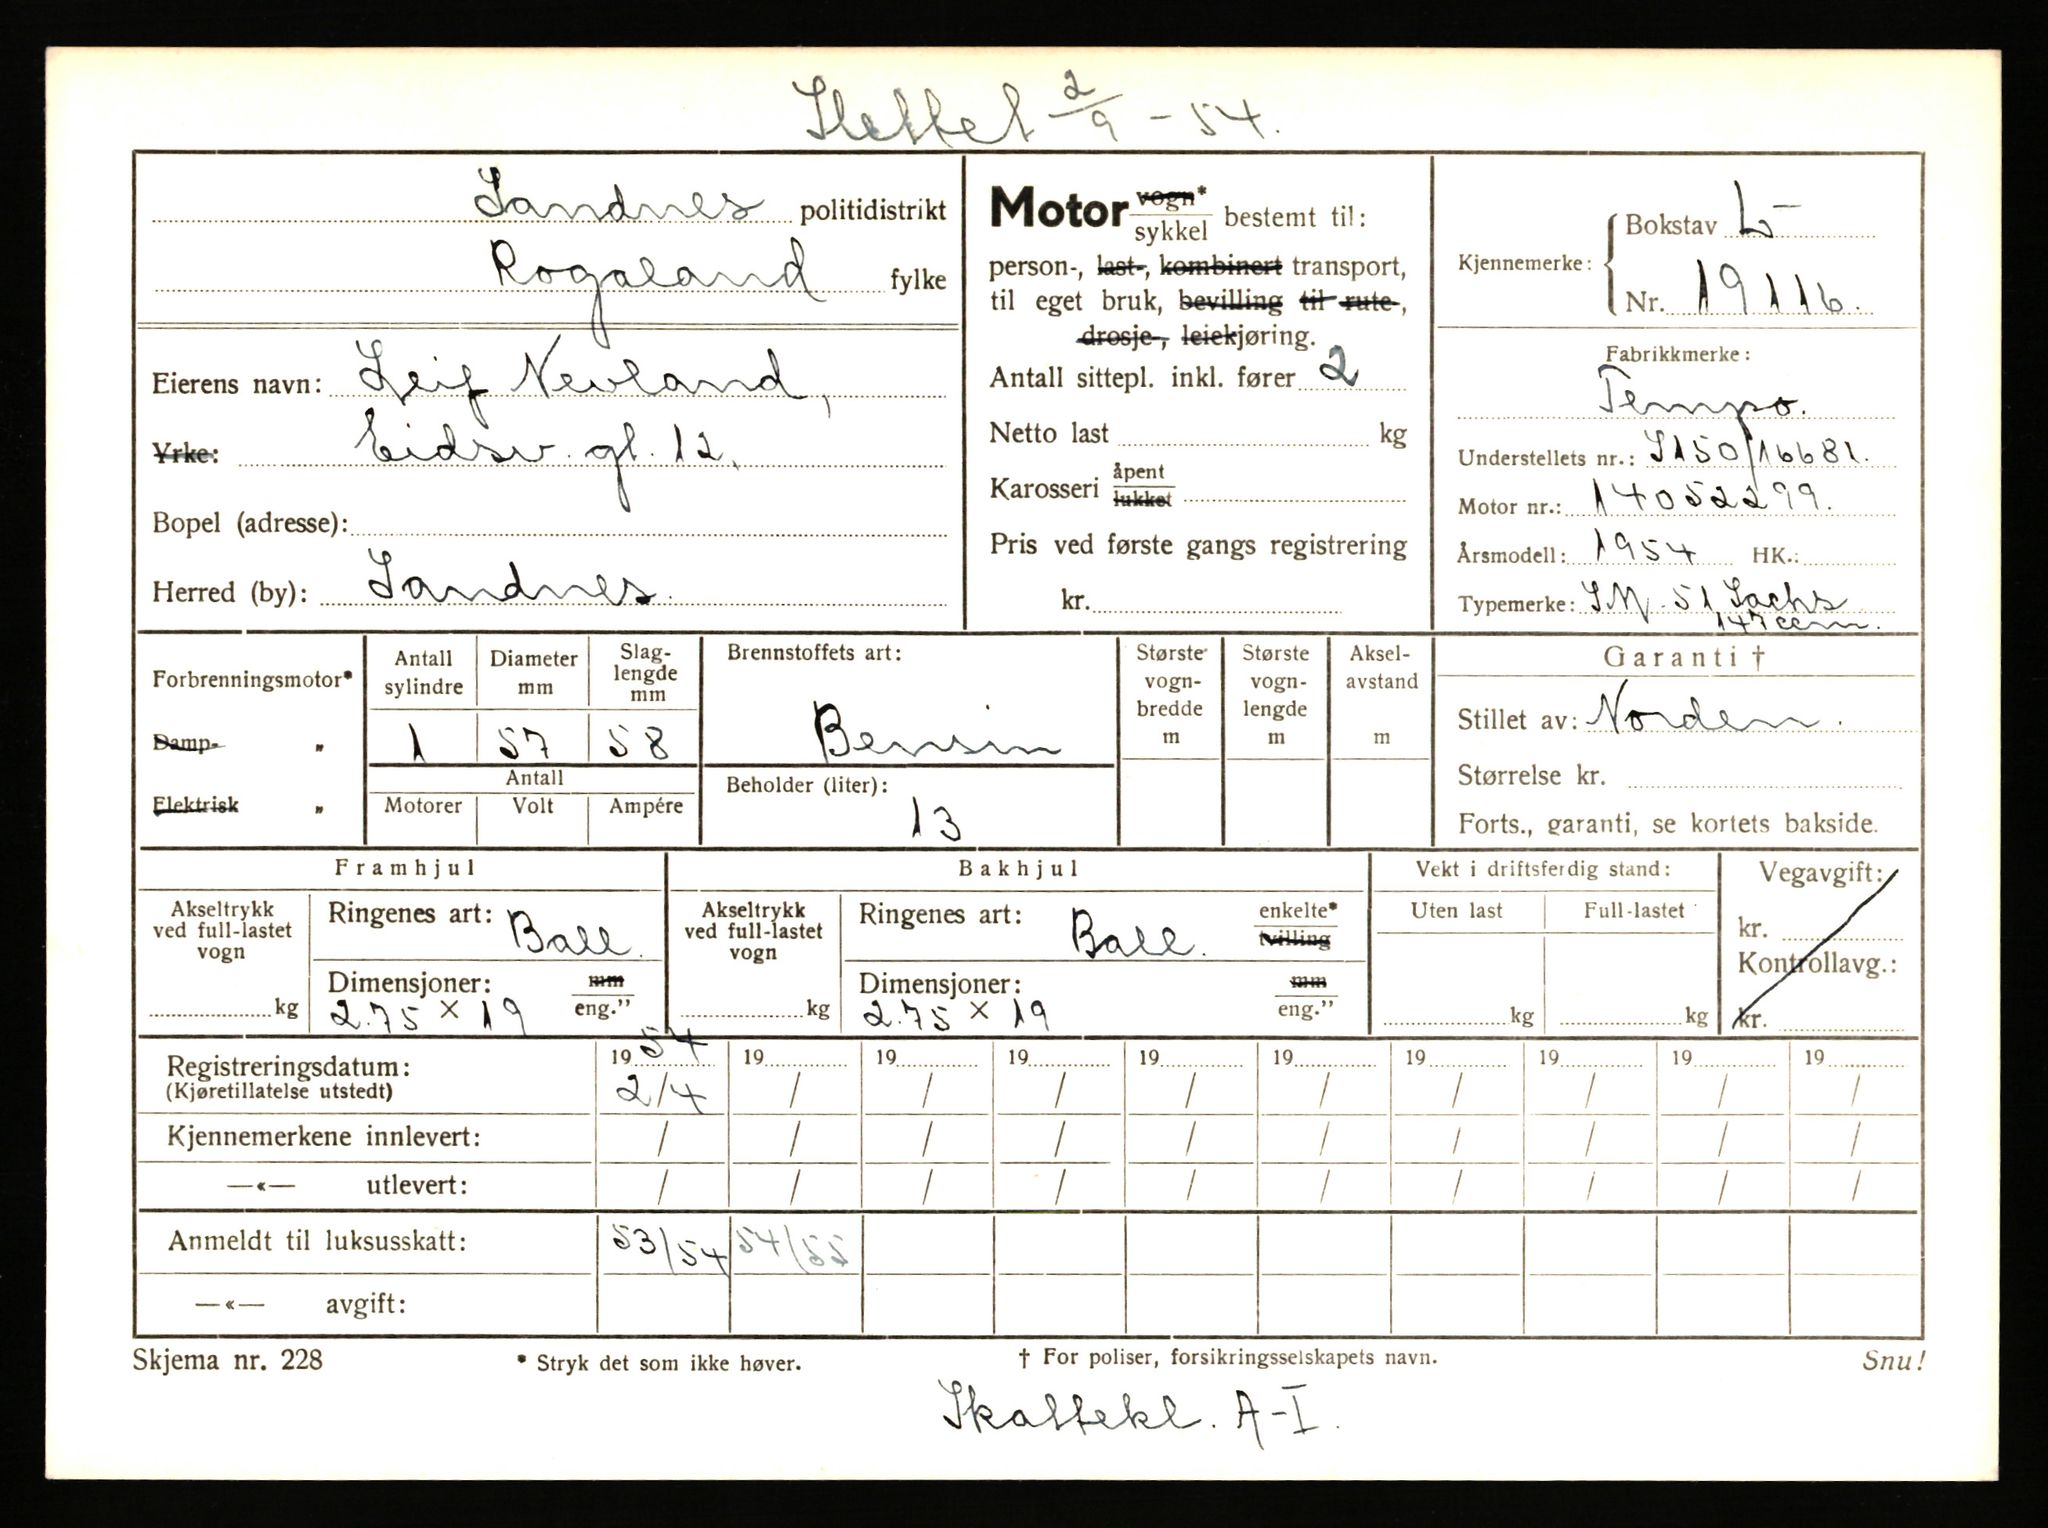 Slettet 2/9 - 54.
Sandnes politidistrikt
Rogaland fylke
Eierens navn: Leif Nevland,
Yrke: Eidsv. gt. 12.
Bopel (adresse):
Herred (by): Sandnes.
Motor vogn* / sykkel bestemt til:
person-, last-, kombinert transport,
til eget bruk, bevilling til rute-,
drosje-, leiekjøring.
Antall sittepl. inkl. fører 2
Netto last kg
Karosseri åpent / lukket
Pris ved første gangs registrering
kr.
Kjennemerke: Bokstav L-
Nr. 19116.
Fabrikkmerke:
Tempo.
Understellets nr.: S150/16681.
Motor nr.: 14052299.
Årsmodell: 1954 HK.:
Typemerke: SM-51 Sachs
147 ccm.
Forbrenningsmotor*
Damp- „
Elektrisk „
Antall sylindre
1
Diameter mm
57
Slag-lengde mm
58
Antall
Motorer Volt Ampére
Brennstoffets art:
Bensin
Beholder (liter):
13
Største vogn-bredde m
Største vogn-lengde m
Aksel-avstand m
Garanti †
Stillet av: Norden.
Størrelse kr.
Forts., garanti, se kortets bakside.
Framhjul
Akseltrykk ved full-lastet vogn
kg
Ringenes art: Ball.
Dimensjoner: mm / eng.”
2.75 × 19
Bakhjul
Akseltrykk ved full-lastet vogn
kg
Ringenes art: Ball. enkelte* / tvilling
Dimensjoner: mm / eng.”
2.75 × 19
Vekt i driftsferdig stand:
Uten last Full-lastet
kg kg
Vegavgift:
kr.
Kontrollavg.:
kr.
Registreringsdatum: 1954 19 19 19 19 19 19 19 19 19
(Kjøretillatelse utstedt) 2/4 / / / / / / / / /
Kjennemerkene innlevert: / / / / / / / / / /
—«— utlevert: / / / / / / / / / /
Anmeldt til luksusskatt: 53/54 54/55
—«— avgift:
Skjema nr. 228 * Stryk det som ikke høver. † For poliser, forsikringsselskapets navn. Snu!
Skattekl. A-I.